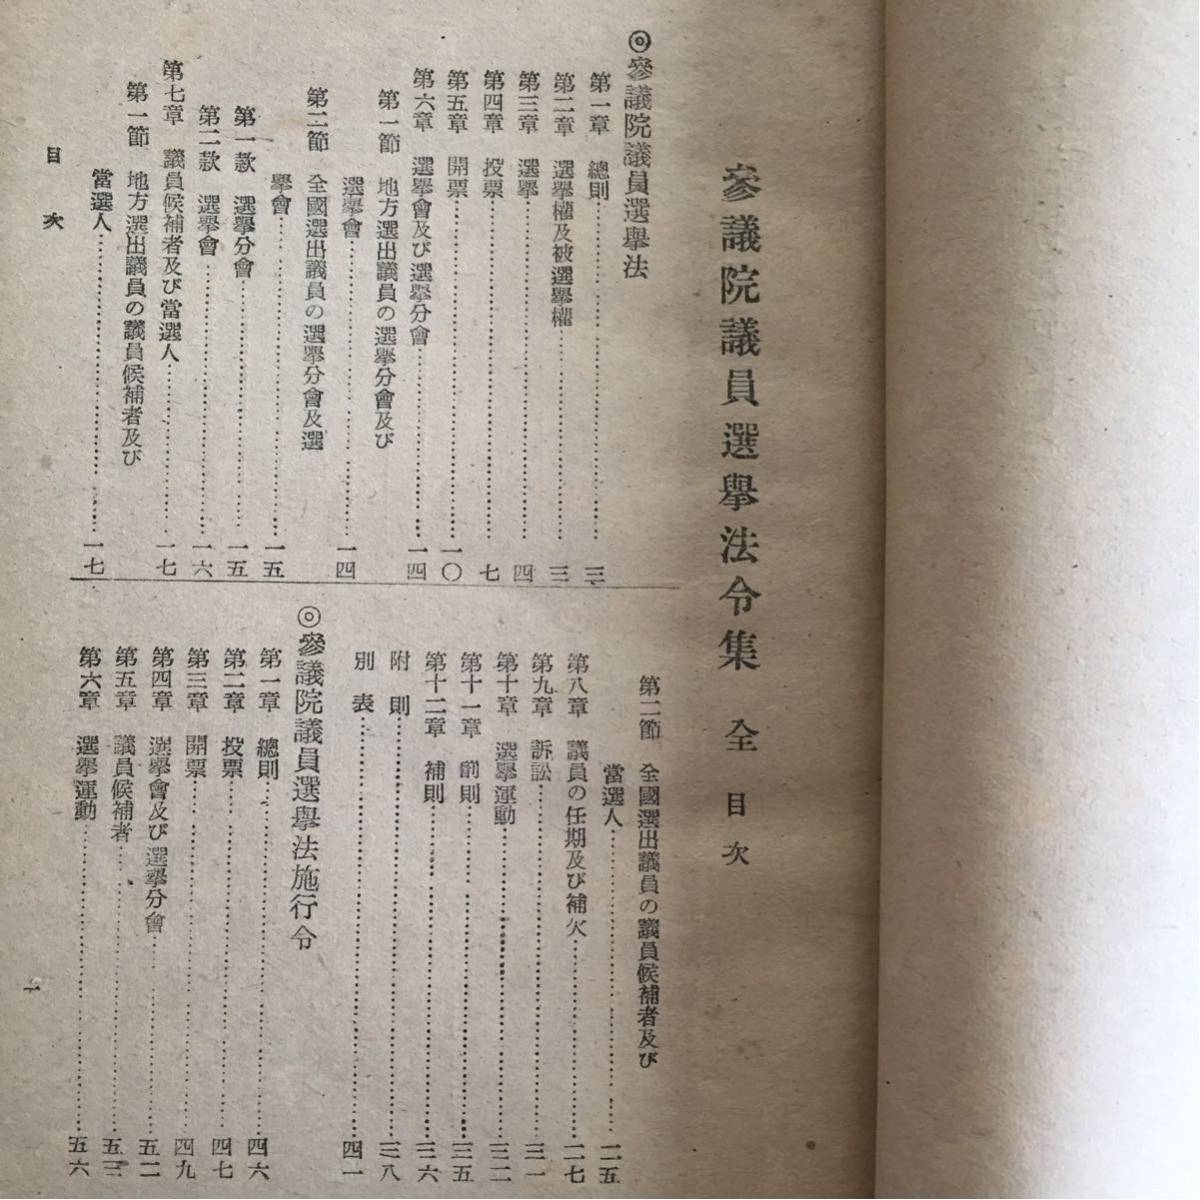 參議院議員選擧法令集 全 目次
◎參議院議員選擧法
第一章 總則……三
第二章 選擧權及被選擧權……三
第三章 選擧……四
第四章 投票……七
第五章 開票……一〇
第六章 選擧會及び選擧分會……一四
第一節 地方選出議員の選擧分會及び
選擧會……一四
第二節 全國選出議員の選擧分會及選
擧會……一五
第一款 選擧分會……一五
第二款 選擧會……一六
第七章 議員候補者及び當選人……一七
第一節 地方選出議員の議員候補者及び
當選人……一七
第二節 全國選出議員の議員候補者及び
當選人……二五
第八章 議員の任期及び補欠……二七
第九章 訴訟……三一
第十章 選擧運動……三二
第十一章 罰則……三五
第十二章 補則……三六
附則……三八
別表……四一
◎參議院議員選擧法施行令
第一章 總則……四六
第二章 投票……四七
第三章 開票……四九
第四章 選擧會及び選擧分會……五二
第五章 議員候補者……五三
第六章 選擧運動……五六
目次
一